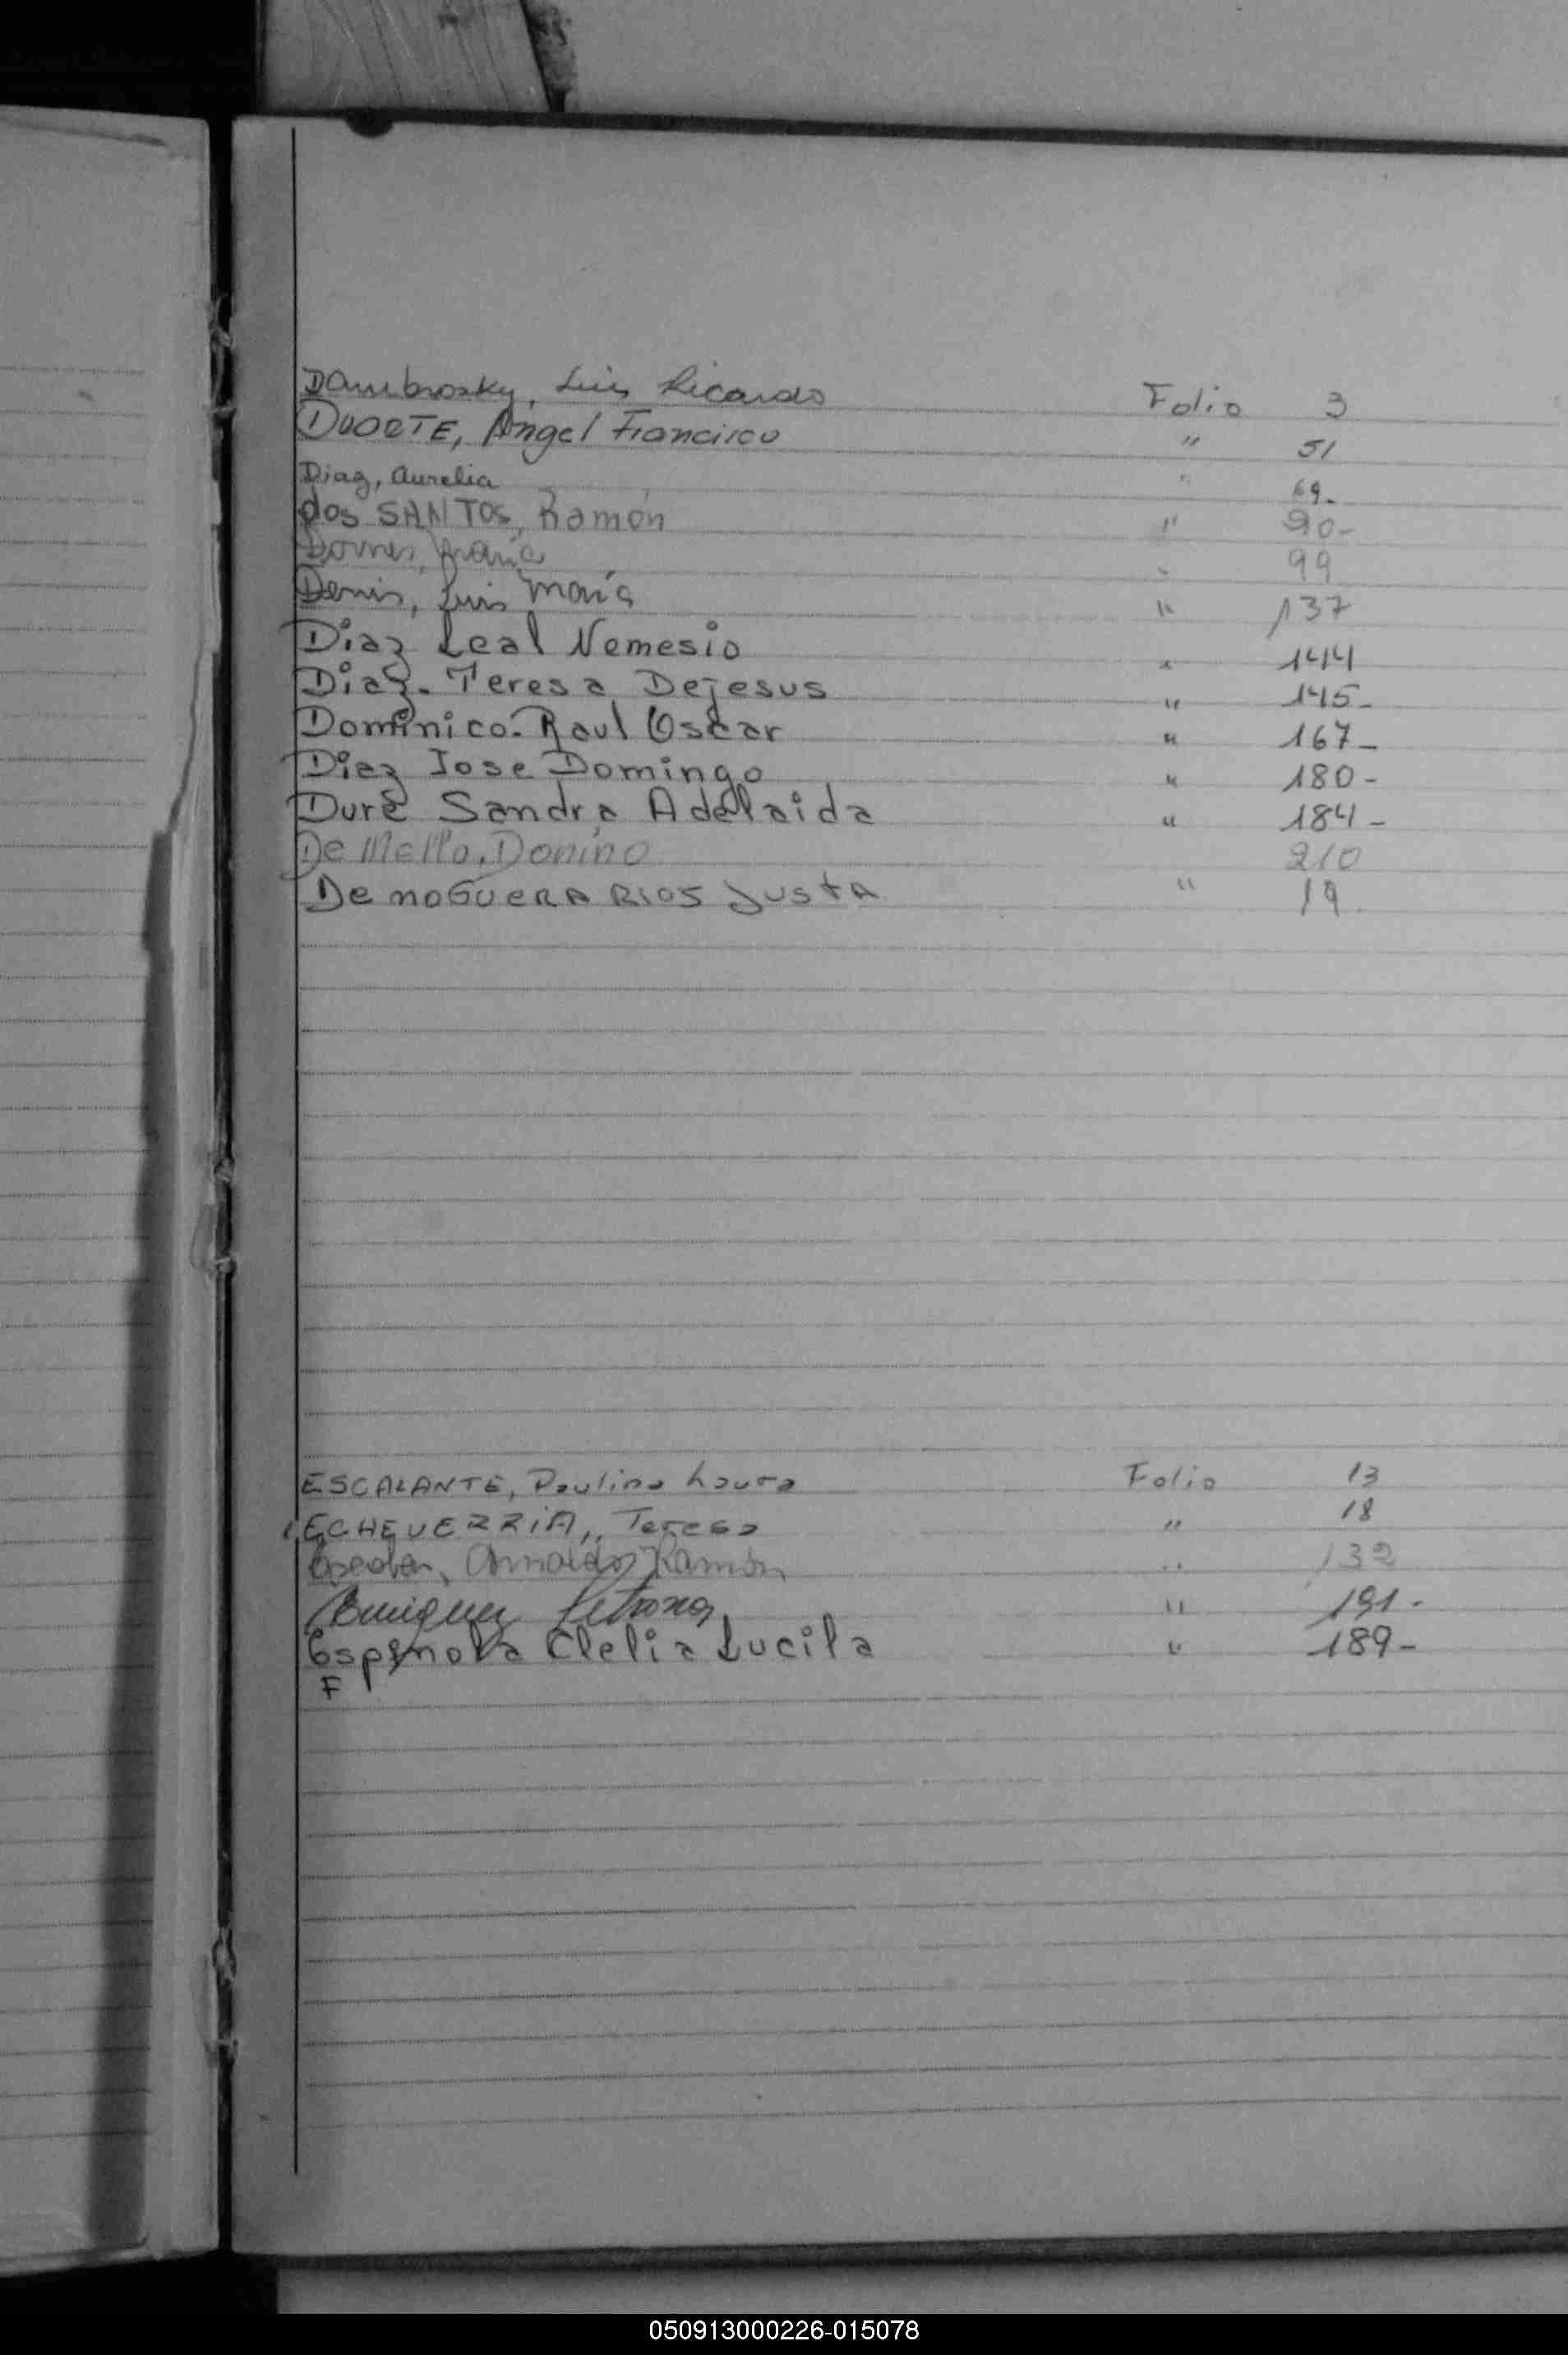 DAmbrosky, Luis Ricardo Folio 3
DUORTE, Angel Francisco " 51
Diaz, Aurelia " 69.
dos SANTOS, Ramón " 90-
María " 99
Denis, Luis María " 137
Diaz Leal Nemesio " 144
Diaz. Teresa Dejesus " 145-
Dominico. Raul Oscar " 167-
Diaz Jose Domingo " 180-
Duré Sandra Adelaida " 184-
De Mello, Donino 210
De NOGUERA RIOS Justa " 19.
ESCALANTE, Paulina Laura Folio 13
ECHEVERRIA, Teresa " 18
Arnaldo Ramón " 132
Enriquez Petrona " 191-
Espinola Clelia Lucila " 189-
F
050913000226-015078